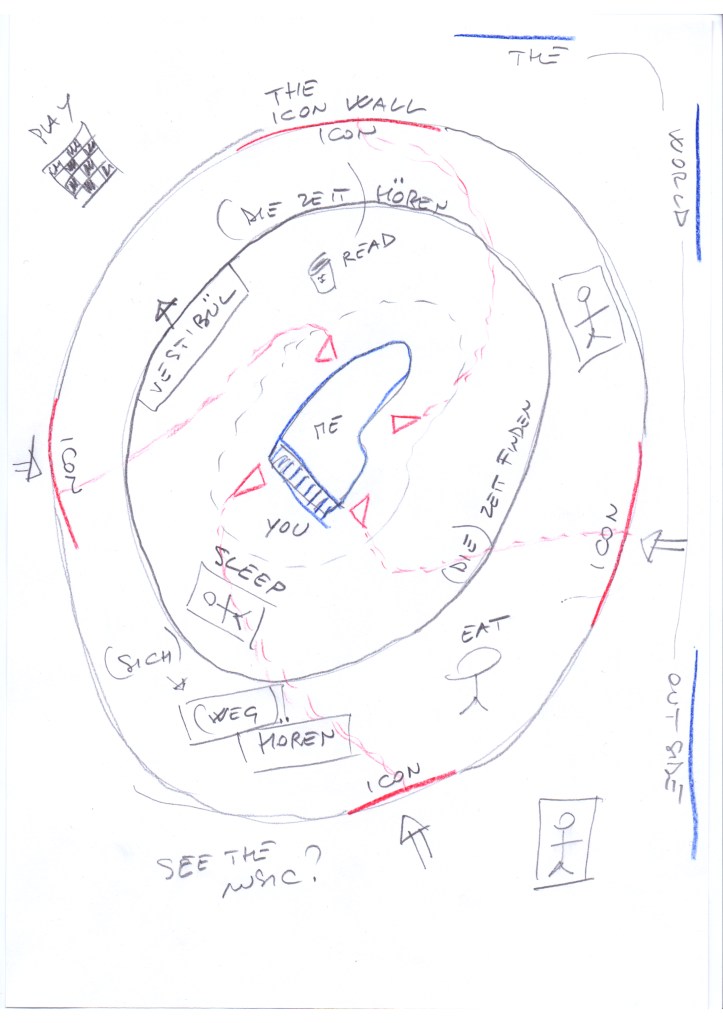 THE
WORLD
OUTSIDE
PLAY
THE
ICON WALL
ICON
(DIE ZEIT) HÖREN
READ
VESTIBÜL
ME
YOU
ICON
ICON
(DIE) ZEIT FINDEN
SLEEP
EAT
(SICH)
(WEG)
HÖREN
ICON
SEE THE
MUSIC?